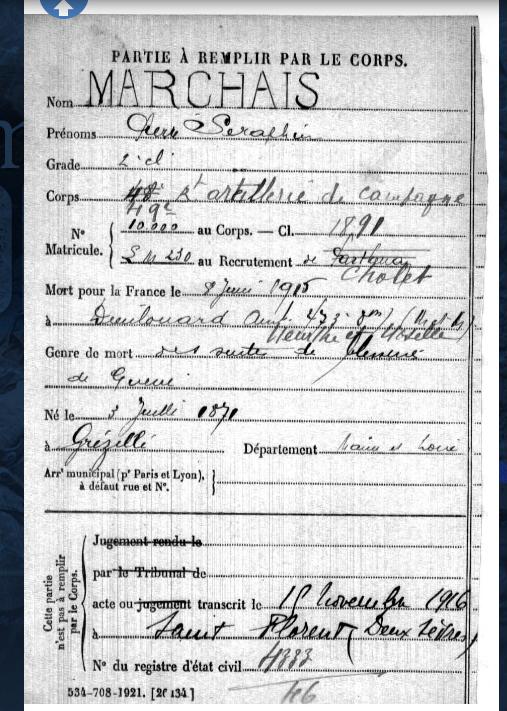 PARTIE À REMPLIR PAR LE CORPS.
Nom MARCHAIS
Prénoms Pierre Séraphin
Grade 2e cl
Corps 49e Rt artillerie de campagne
N° Matricule. 10.000 au Corps. — Cl. 1891
S M 230 au Recrutement de Cholet
Mort pour la France le 8 Juin 1915
à Dieulouard Amb. 4/33
Meurthe et Moselle
Genre de mort des suite de blessure
de Guerre
Né le 3 Juillet 1871
à Grézillé Département Maine et Loire
Arrt municipal (pr Paris et Lyon), à défaut rue et N°.
Cette partie n'est pas à remplir par le Corps.
Jugement rendu le
par le Tribunal de
acte ou jugement transcrit le 15 novembre 1916
à Saint Florent (Deux Sèvres)
N° du registre d'état civil 4333
534-708-1921. [26134]